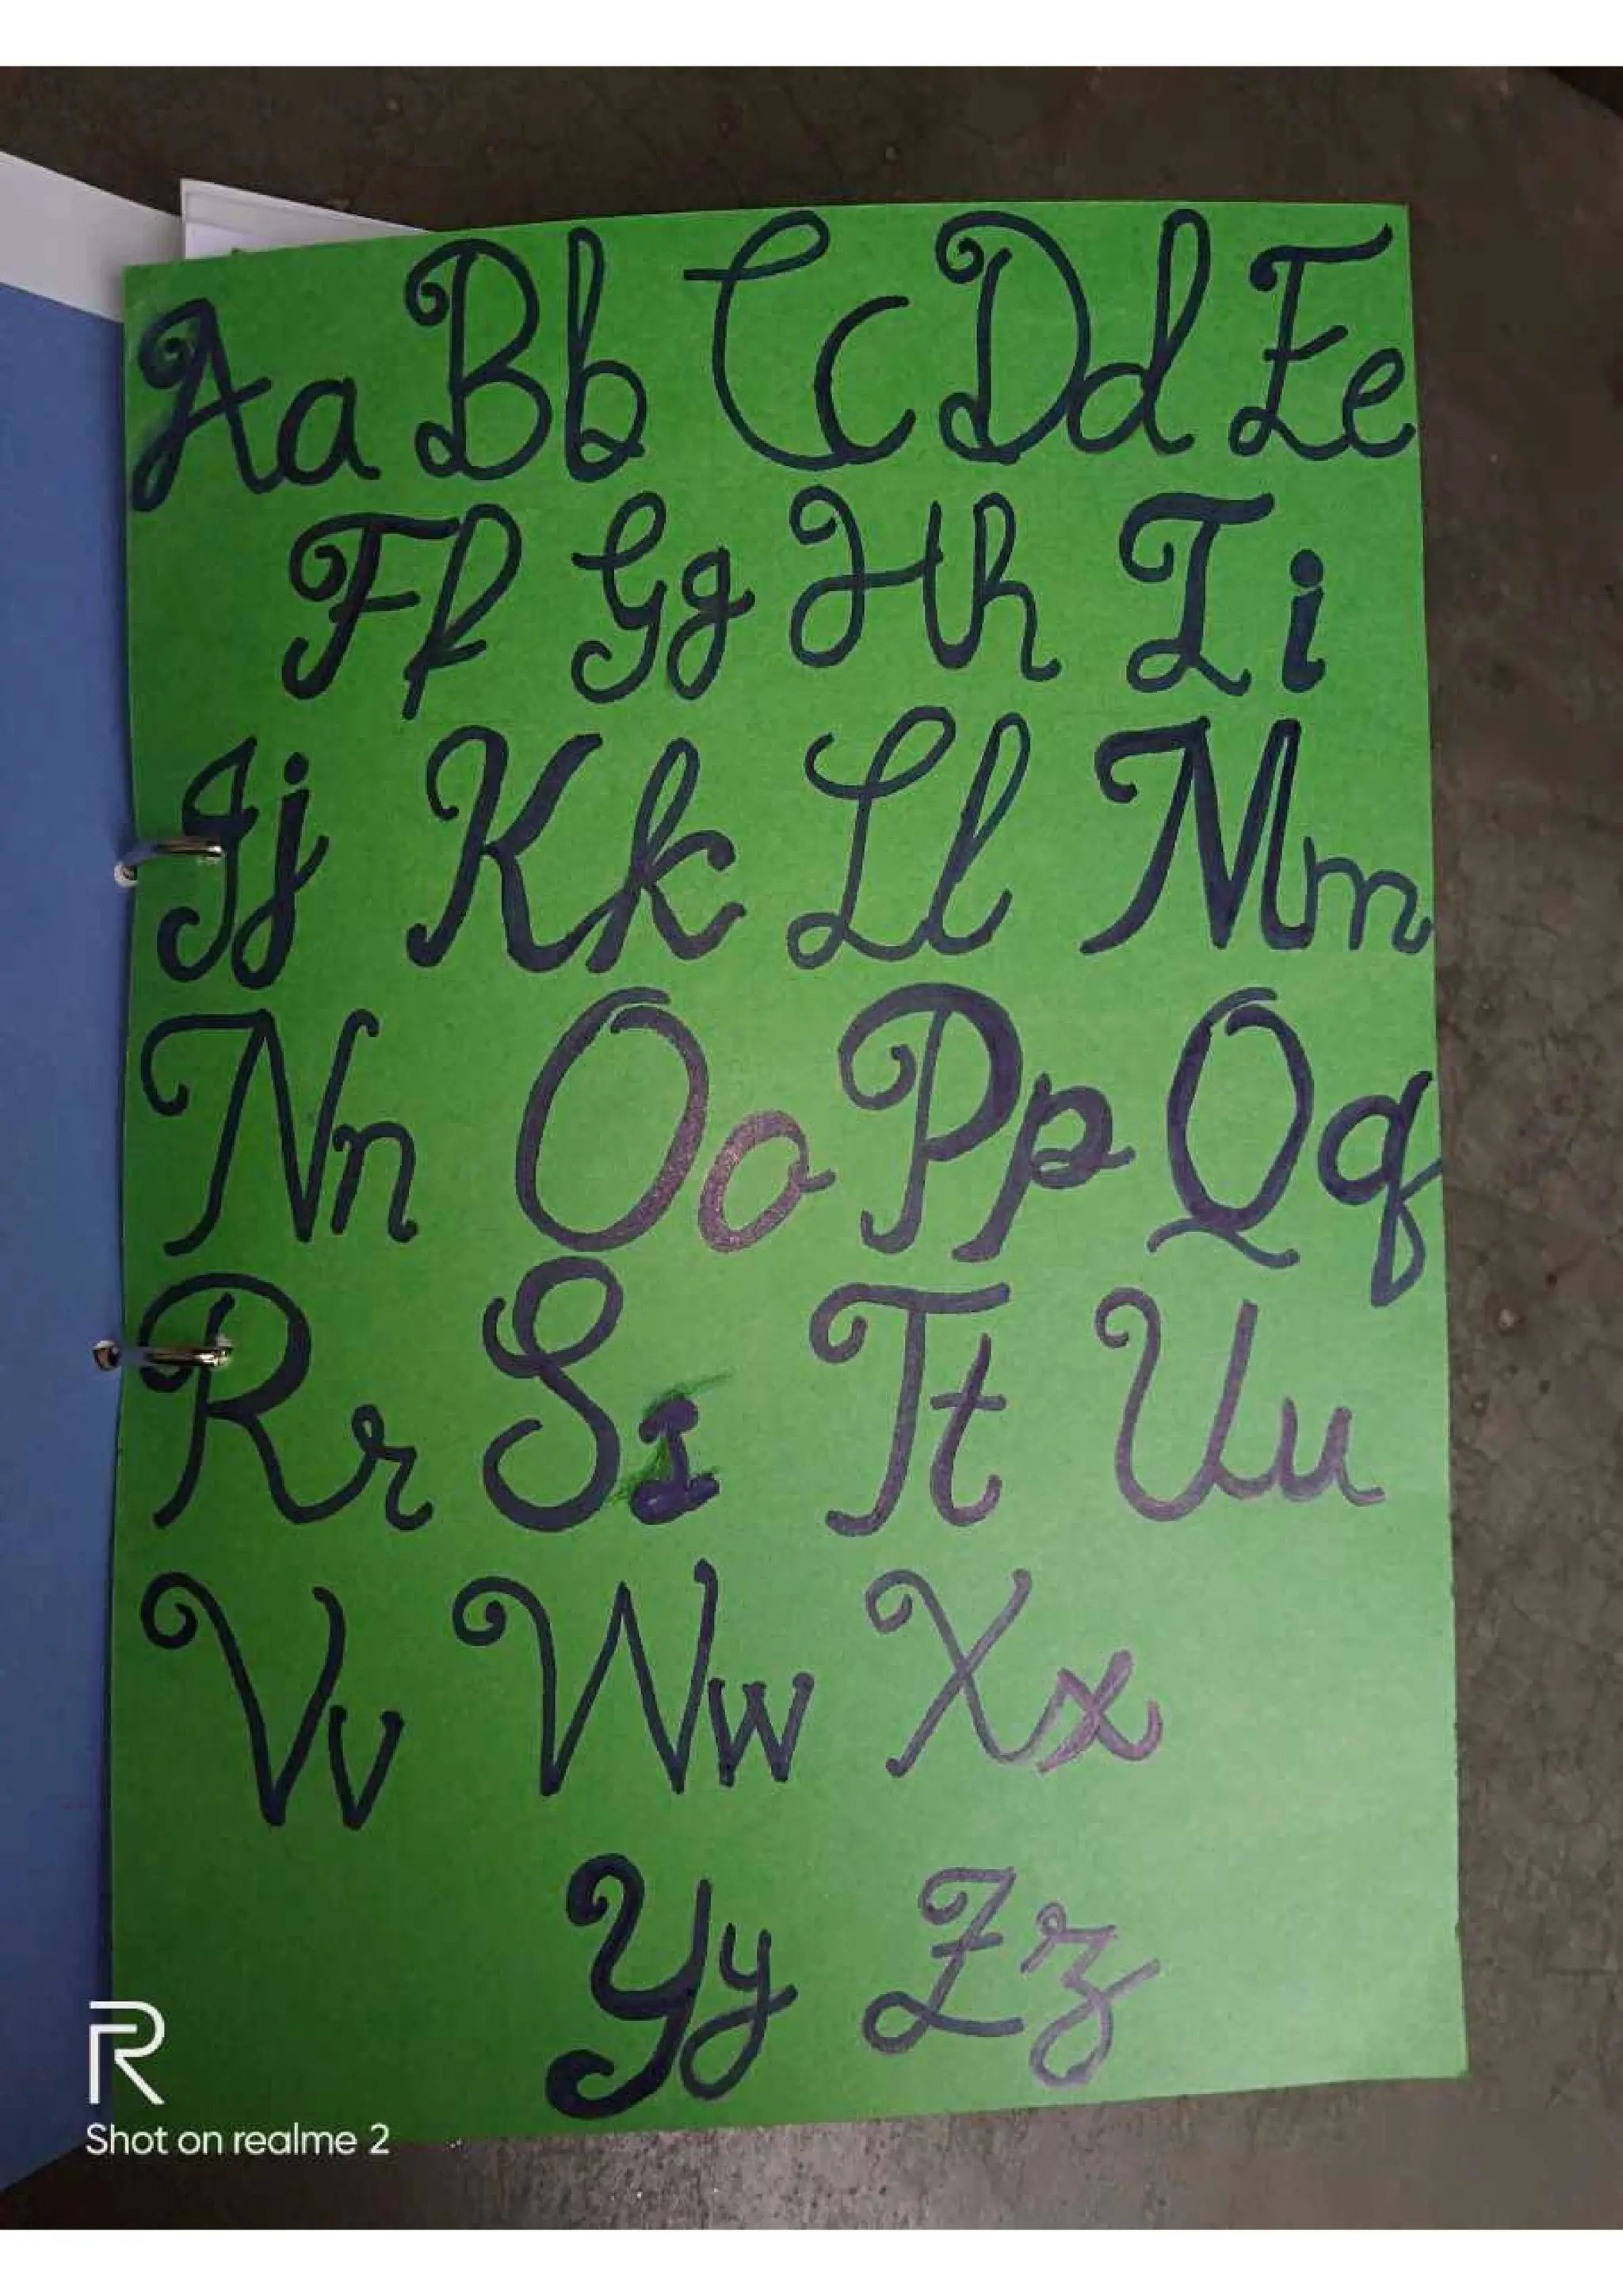 Aa Bb Cc Dd Ee
Ff Gg Hh Ii
Jj Kk Ll Mm
Nn Oo Pp Qq
Rr Ss Tt Uu
Vv Ww Xx
Yy Zz
R
Shot on realme 2